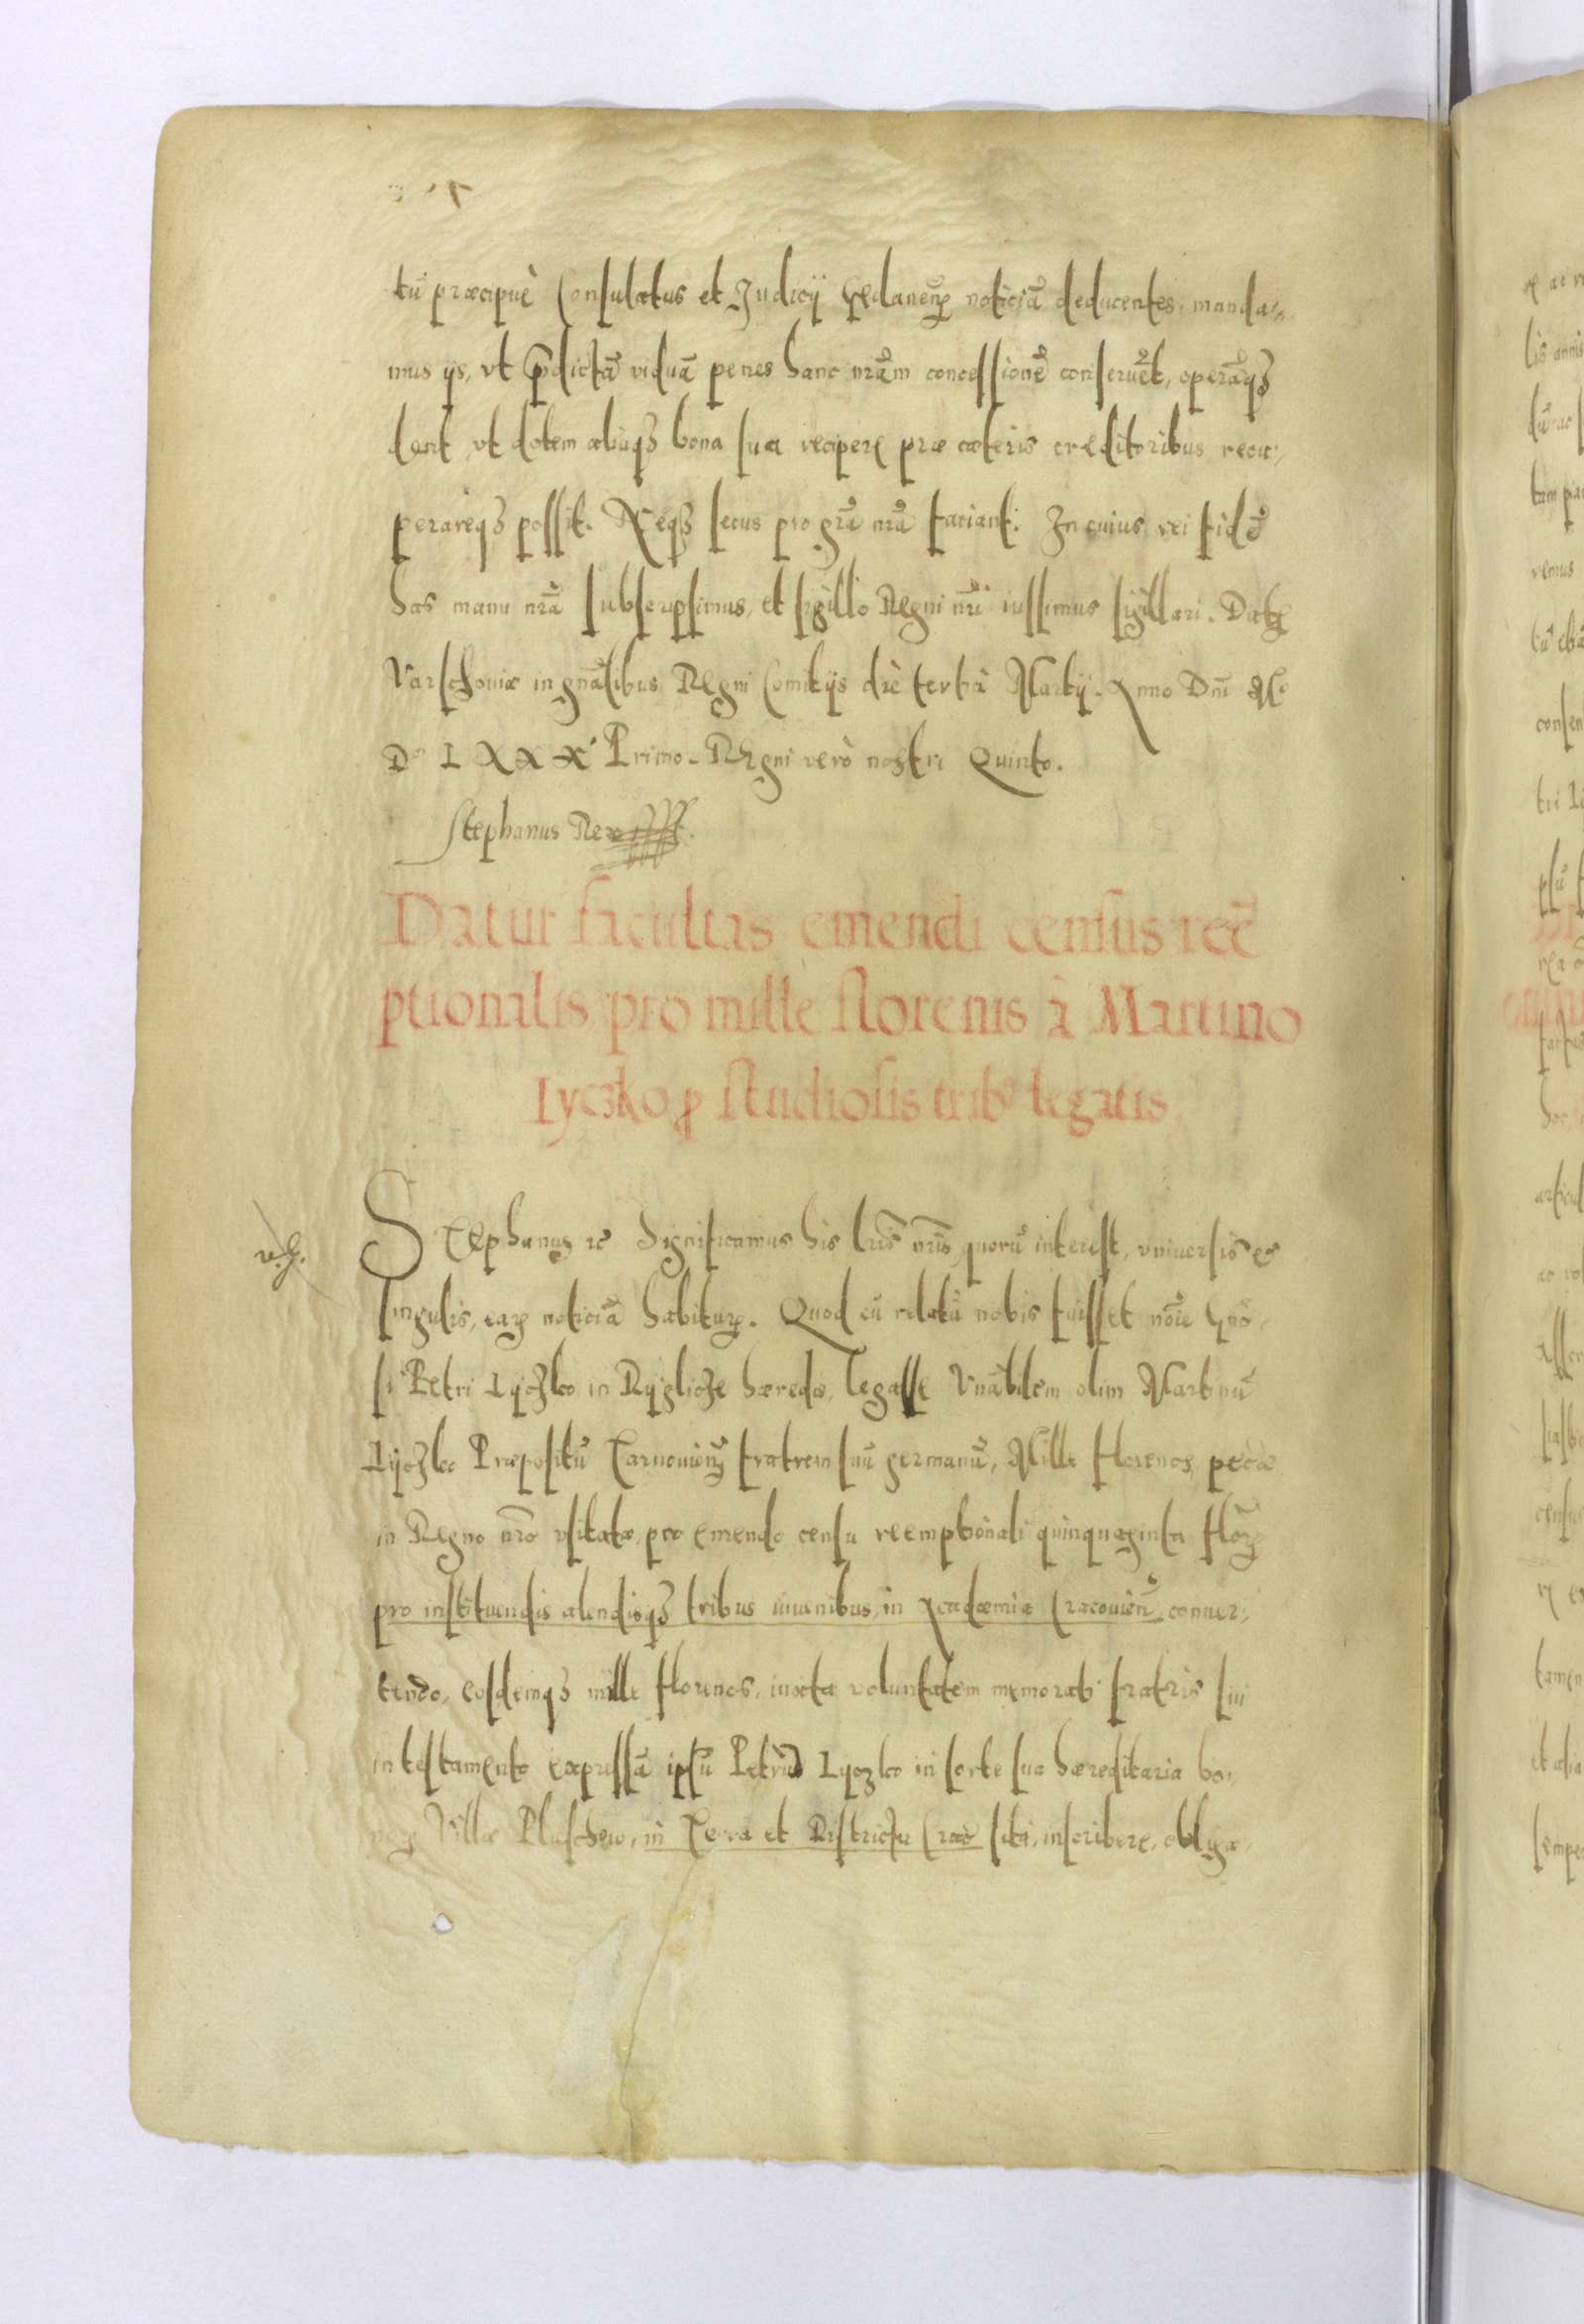 tũ præcipuè Consulatus et Judicij Gedaneñ noticiã deducentes, manda-
mus ijs, vt prædictã viduã penes hanc nrãm concessionẽ conseruẽt, operãqȝ
dent vt dotem aliaqȝ bona sua recipere præ cæteris creditoribus recu-
perareqȝ possit. Neqȝ secus pro grã nrã faciant. In cuius rei fidẽ
has manu nrã subscripsimus, et sigillo Regni nri iussimus sigillari. Datȝ
Varschouiæ in gnãlibus Regni Comitijs die tertia Martij. Anno Dñi Mº
Dº LXXXº Primo. Regni verò nostri Quinto.
Stephanus Rex
Datur facultas emendi census reẽ
ptionalis pro mille florenis à Martino
Lyczko ꝓ studiosis trib⁹ legatis
Stephanus ꝛc Significamus his lrĩs nrĩs, quorũ interest, vniuersis et
singulis, earꝝ noticiã habiturꝭ. Quod cũ relatũ nobis fuisset nõie Gñõ-
si Petri Lyczko in Ryglicze hæredis, legasse Vnãbilem olim Martinũ
Lyczko Præpositũ Tarnouieñ fratrem suũ germanũ, Mille florenos pecũæ
in Regno nrõ vsitatæ, pro emendo censu reemptionali quinquaginta florꝝ
pro instituendis alendisqȝ tribus iuuenibus, in Academia Cracouieñ, conuer-
tendo, eosdemqȝ mille florenos, iuxta voluntatem memorati fratris sui
in testamento expressã ipsũ Petrũ Lyczko in sorte sua hæreditaria bo-
norꝝ Villæ Plaschow, in Terra et Districtu Crac̃ siti, inscribere, obliga-